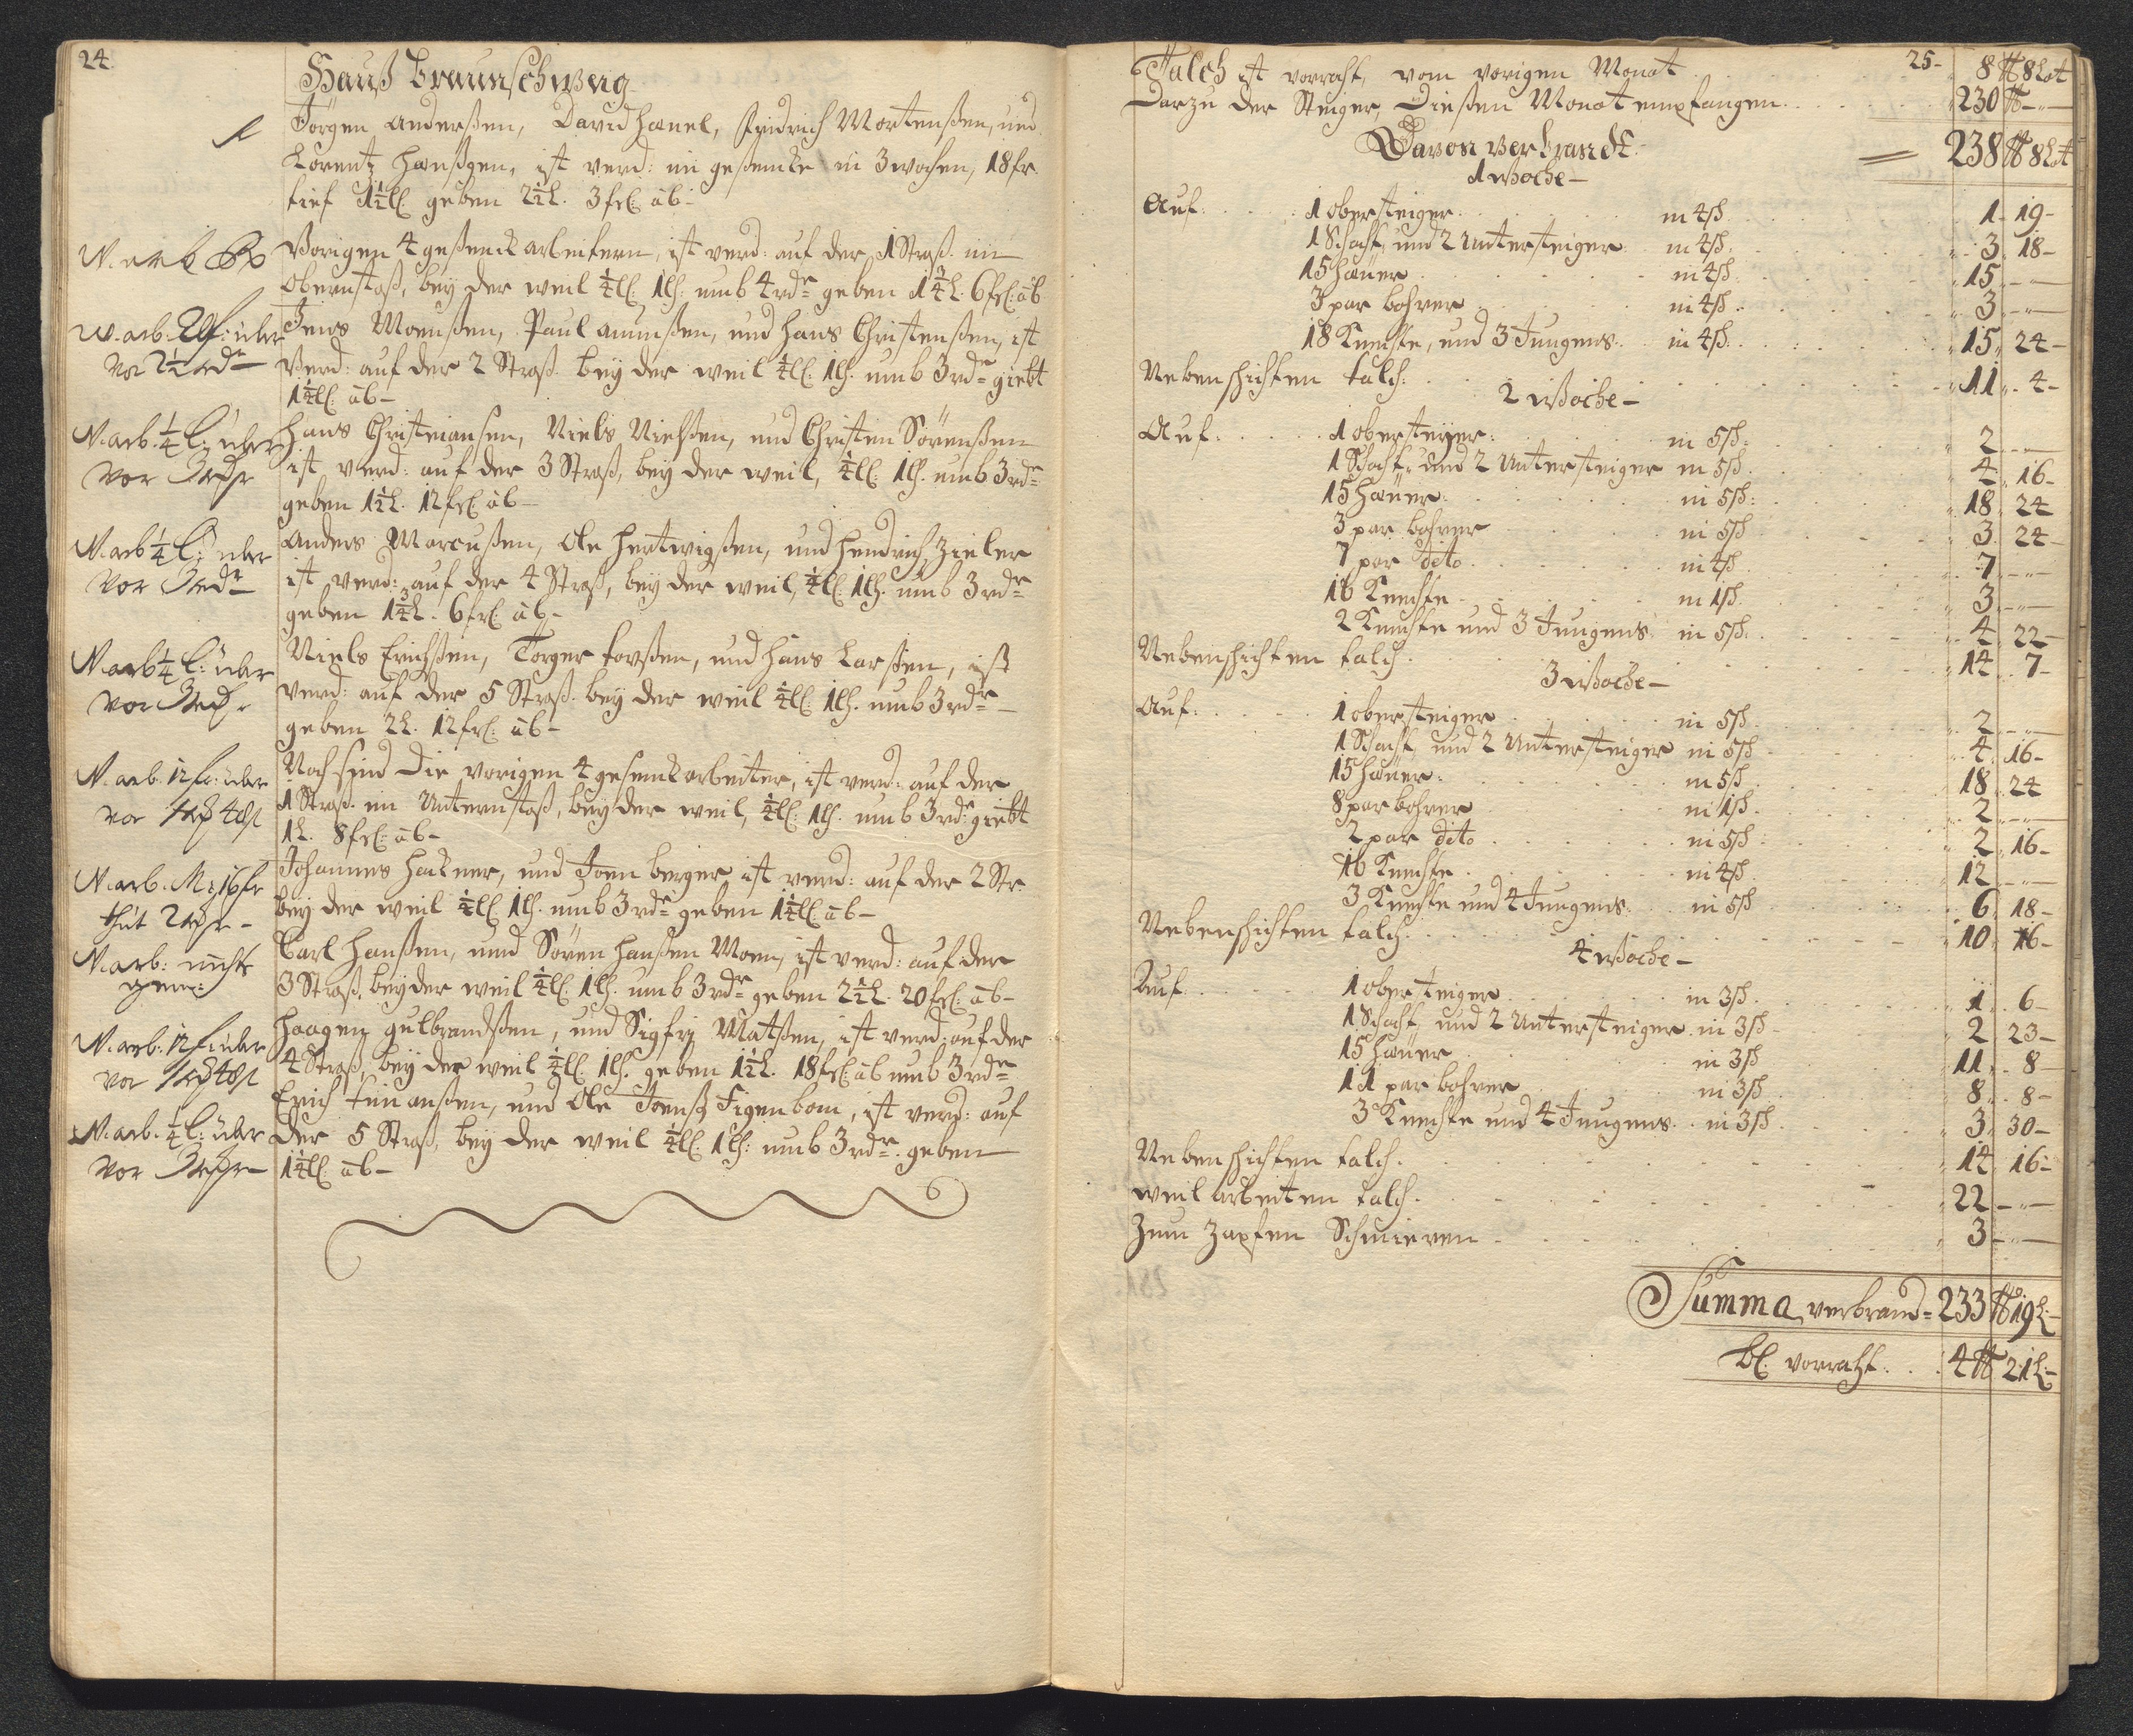 24.
Hauß braunschweig
Jörgen Anderßen, David Hænel, fridrich Mortenßen, und
Lorentz Hanßgen, ist verd: im geßencke in 3 wochen, 18 fr.
tief 1½ geben 2½ L. 3 frl: ab-
Vorigen 4 geßenck arbeitern, ist verd: auf der 1 Straß. im
Obernstoß, bey der weil ¼ 1 umb 4 rdr geben 1¾ L. 6 frl: ab
über
vor 2½ rdr
Jens Monßen, Paul Amunßen, und Hans Christenßen, ist
Verd: auf der 2 Straß. bey der weil ¼ 1 umb 3 rdr giebt
1¼ ab-
N. arb. ¼ L: über
vor 3 rdr
Hans Christiansen, Niels Nielßen, und Christen Sörenßen
ist verd: auf der 3 Straß, bey der weil, ¼ 1 umb 3 rdr
geben 1½ L. 12 frl: ab-
N. arb ¼ L: über
vor 3 rdr
Anders Marcußen, Ole Hertwigßen, und Hendrich Zieler
ist verd: auf der 4 Straß, bey der weil, ¼ 1 umb 3 rdr
geben 1¾ L. 6 frl: ab-
N. arb ¼ L: über
vor 3 rdr
Niels Erichßen, Törger torßen, und Hans Larßen, ist
verd: auf der 5 Straß. bey der weil ¼ 1 umb 3 rdr
geben 2 L. 12 frl: ab-
N. arb. 12 fr: über
vor
Noch sind die vorigen 4 gesenck arbeiter, ist verd: auf der
1 Straß. im Unternstoß, bey der weil, ¼ 1 umb 3 rdr giebt
1 L. 8 frl: ab-
N. arb. 16 fr
thut 2 rdr -
Johannes Hackner, und Joen berger ist verd: auf der 2 Str.
bey der weil ¼ 1 umb 3 rdr geben 1¼ ab-
N. arb: nichts
Carl Hanßen, und Sören Hanßen Moen, ist verd: auf der
3 Straß, bey der weil ¼ 1 umb 3 rdr geben 2½ L. 20 frl: ab-
N. arb. 12 f: über
vor
Haagen gulbrandßen, und Sigfrij Matßen, ist verd: auf der
4 Straß, bey der weil ¼ 1 geben 1½ L. 18 frl: ab umb 3 rdr
N. arb. ¼ L: über
vor 3 rdr
Erich, und Ole Joenß Figenbom, ist verd: auf
der 5 Straß, bey der weil ¼ 1 umb 3 rdr geben
1¼ ab-
25-
Talch ist vorraht, vom vorigen Monat 8 ℔ 8 Lot
Darzu der Steiger, Dießen Monat empfangen 230 ℔ -"-
238 ℔ 8 Lot
Davon verbrandt.
1 Woche-
Auf 1 obersteiger in 4 ß 1. 19-
1 Schacht, und 2 Untersteiger in 4 ß 3. 18-
15 Hæuer in 4 ß 15 -"-
3 par bohrer in 4 ß 3 -"-
18 Knechte, und 3 Jungens in 4 ß 15. 24-
Nebenschichten talch. 11. 4-
2 Woche-
Auf 1 obersteiger in 5 ß 2 -"-
1 Schacht, und 2 Untersteiger in 5 ß 4. 16-
15 Hæuer in 5 ß 18. 24
3 par bohrer in 5 ß 3. 24-
7 par dito in 4 ß 7 -"-
16 Knechte in 1 ß 3 -"-
2 Knechte und 3 Jungens in 5 ß 4. 22-
Nebenschichten talch. 14. 7-
3 Woche-
Auf 1 obersteiger in 5 ß 2 -"-
1 Schacht, und 2 Untersteiger in 5 ß 4. 16-
15 Hæuer in 5 ß 18. 24
8 par bohrer in 1 ß 2 -"-
2 par dito in 5 ß 2. 16-
16 Knechte in 4 ß 12 -"-
3 Knechte und 4 Jungens in 5 ß 6. 18-
Nebenschichten talch. 10. 16-
4 Woche-
Auf 1 obersteiger in 3 ß 1. 6-
1 Schacht, und 2 Untersteiger in 3 ß 2. 23-
15 Hæuer in 3 ß 11. 8
11 par bohrer in 3 ß 8. 8-
3 Knechte und 4 Jungens in 3 ß 3. 30-
Nebenschichten talch. 14. 16-
weil arbeiten talch. 22 -"-
Zum Zapfen Schmieren 3 -"-
Summa verbrand= 233 ℔ 19 L-
bl: vorraht 4 ℔ 21 L-